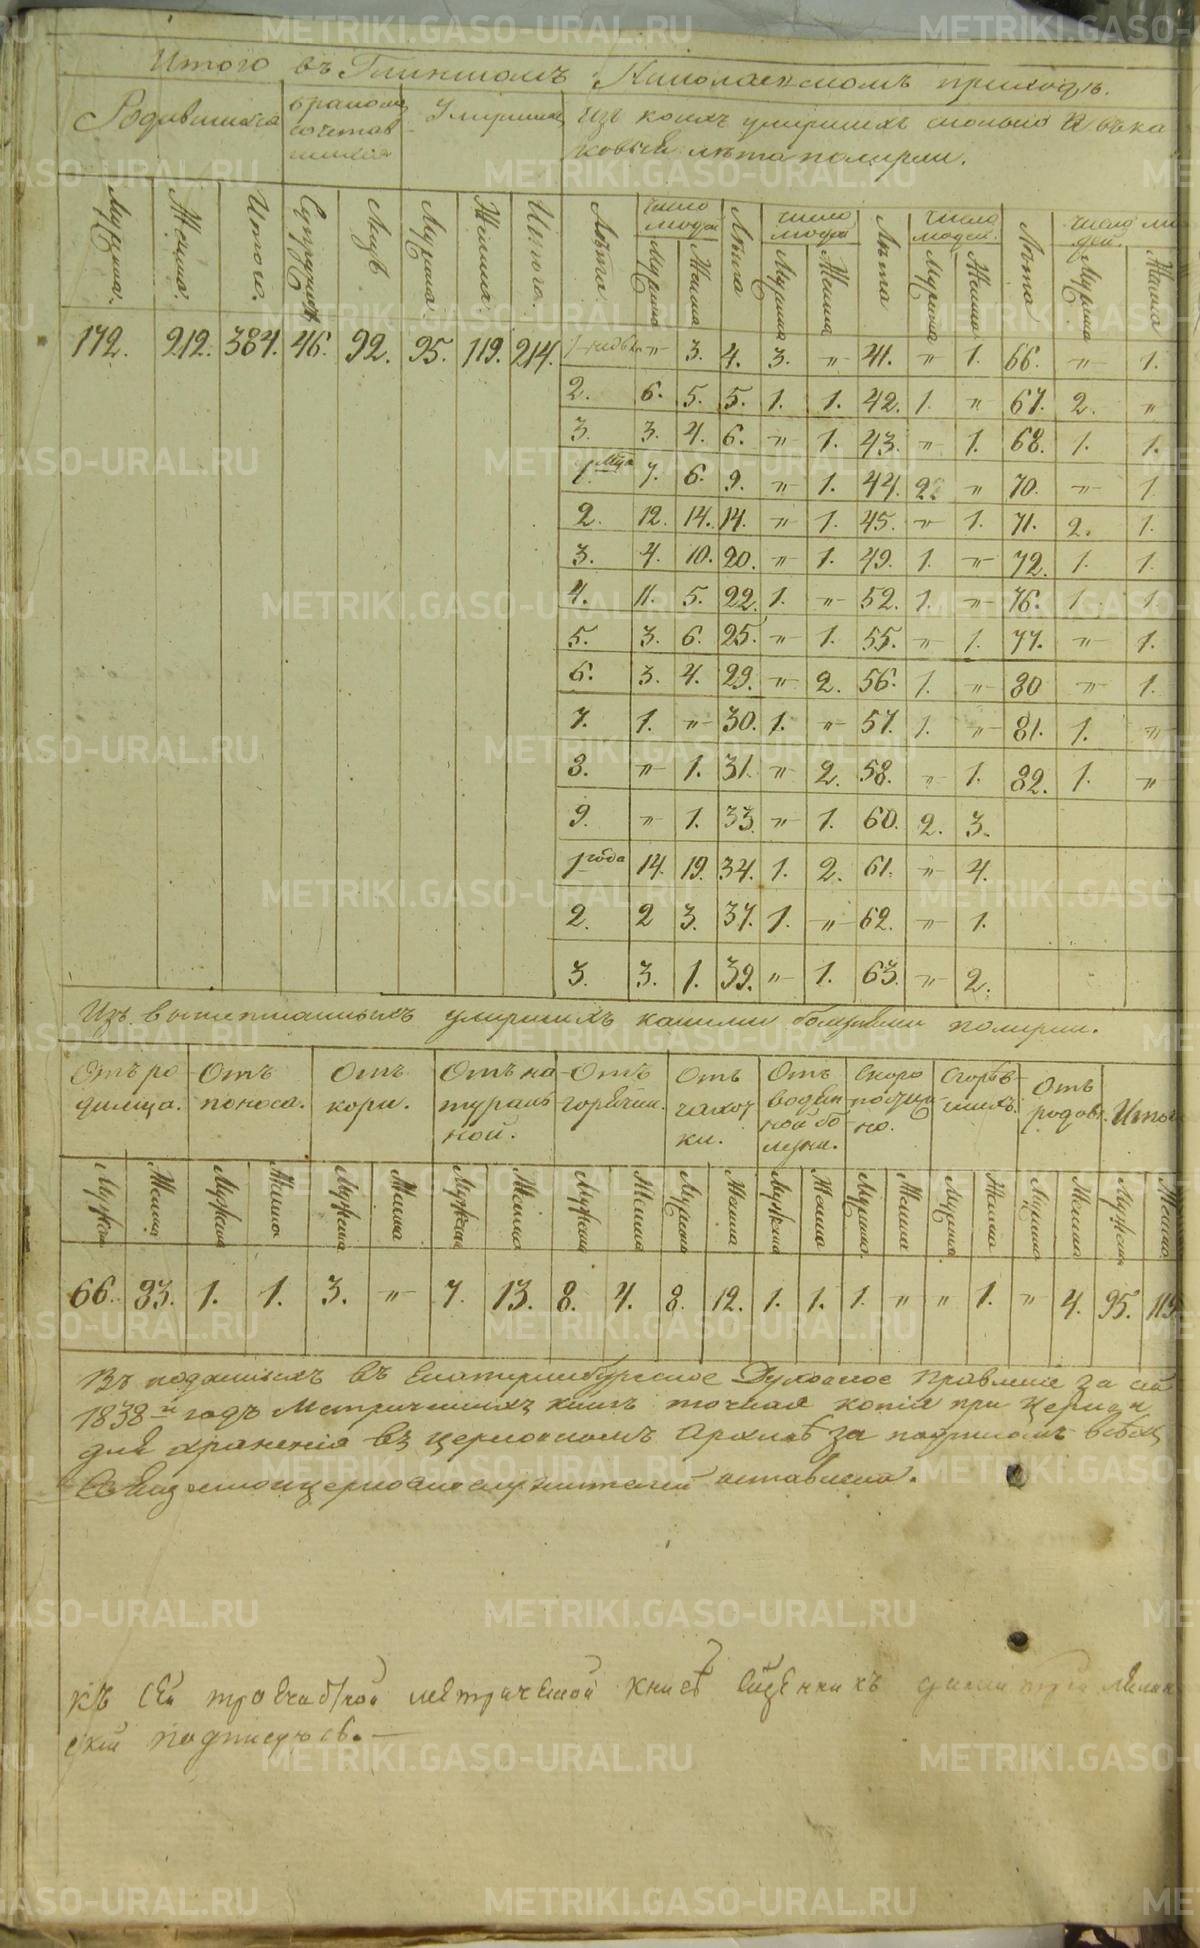 Итого въ Глинскомъ Николаевскомъ приходѣ.
Родившихся
бракомъ сочетавшихся
Умершихъ
Изъ коихъ умершихъ сколько и въ каковыя лѣта померли.
Мужеска. Женска. Итого. Супружествъ Лицъ Мужска. Женска Итого.
Лѣта. число людей Мужска Женска Лѣта. число людей Мужска Женска Лѣта число людей. Мужска Женска Лѣта число людей. Мужска Женска
172. 212. 384. 46. 92. 95. 119. 214.
1 " 3. 4. 3. " 41. " 1. 66. " 1.
2. 6. 5. 5. 1. 1. 42. 1. " 67. 2. "
3. 3. 4. 6. " 1. 43. " 1. 68. 1. 1.
1. мца 7. 6. 9. " 1. 44. 2. " 70. " 1
2. 12. 14. 14. " 1. 45. " 1. 71. 2. 1.
3. 4. 10. 20. " 1. 49. 1. " 72. 1. 1.
4. 11. 5. 22. 1. " 52. 1. " 76. 1. 1.
5. 3. 6. 25. " 1. 55. " 1. 77. " 1.
6. 3. 4. 29. " 2. 56. 1. " 80 " 1.
7. 1. " 30. 1. " 57. 1. " 81. 1. "
8. " 1. 31. " 2. 58. " 1. 82. 1. "
9. " 1. 33. " 1. 60. 2. 3.
1 года 14. 19. 34. 1. 2. 61. " 4.
2. 2 3. 37. 1. " 62. " 1.
3. 3. 1. 39. " 1. 63. " 2.
Изъ вышеписанныхъ умершихъ какими болѣзньми померли.
Отъ родимца. Отъ поноса. Отъ кори. Отъ натуральной. Отъ горячки. Отъ чахотки. Отъ водяной болезни. Скоропостижно. Сгорѣвшихъ. Отъ родовъ. Итого
Мужска Женска Мужска Женска Мужска Женска Мужска Женска Мужска Женска Мужска Женска Мужска Женска Мужска Женска Мужска Женска Мужска Женска Мужска Женска
66. 83. 1. 1. 3. " 7. 13. 8. 4. 8. 12. 1. 1. 1. " " 1. " 4. 95. 119
Въ поданныхъ въ Екатеринбургское Духовное Правленіе за сей
1838й годъ Метрическихъ книгъ точная копія при Церкви
для храненія въ церковномъ Архивѣ за подписомъ всѣхъ
священноцерковнослужителей оставлена.
Къ сей троечастной метрической книгѣ священникъ
ский подписуюсь.
METRIKI.GASO-URAL.RU